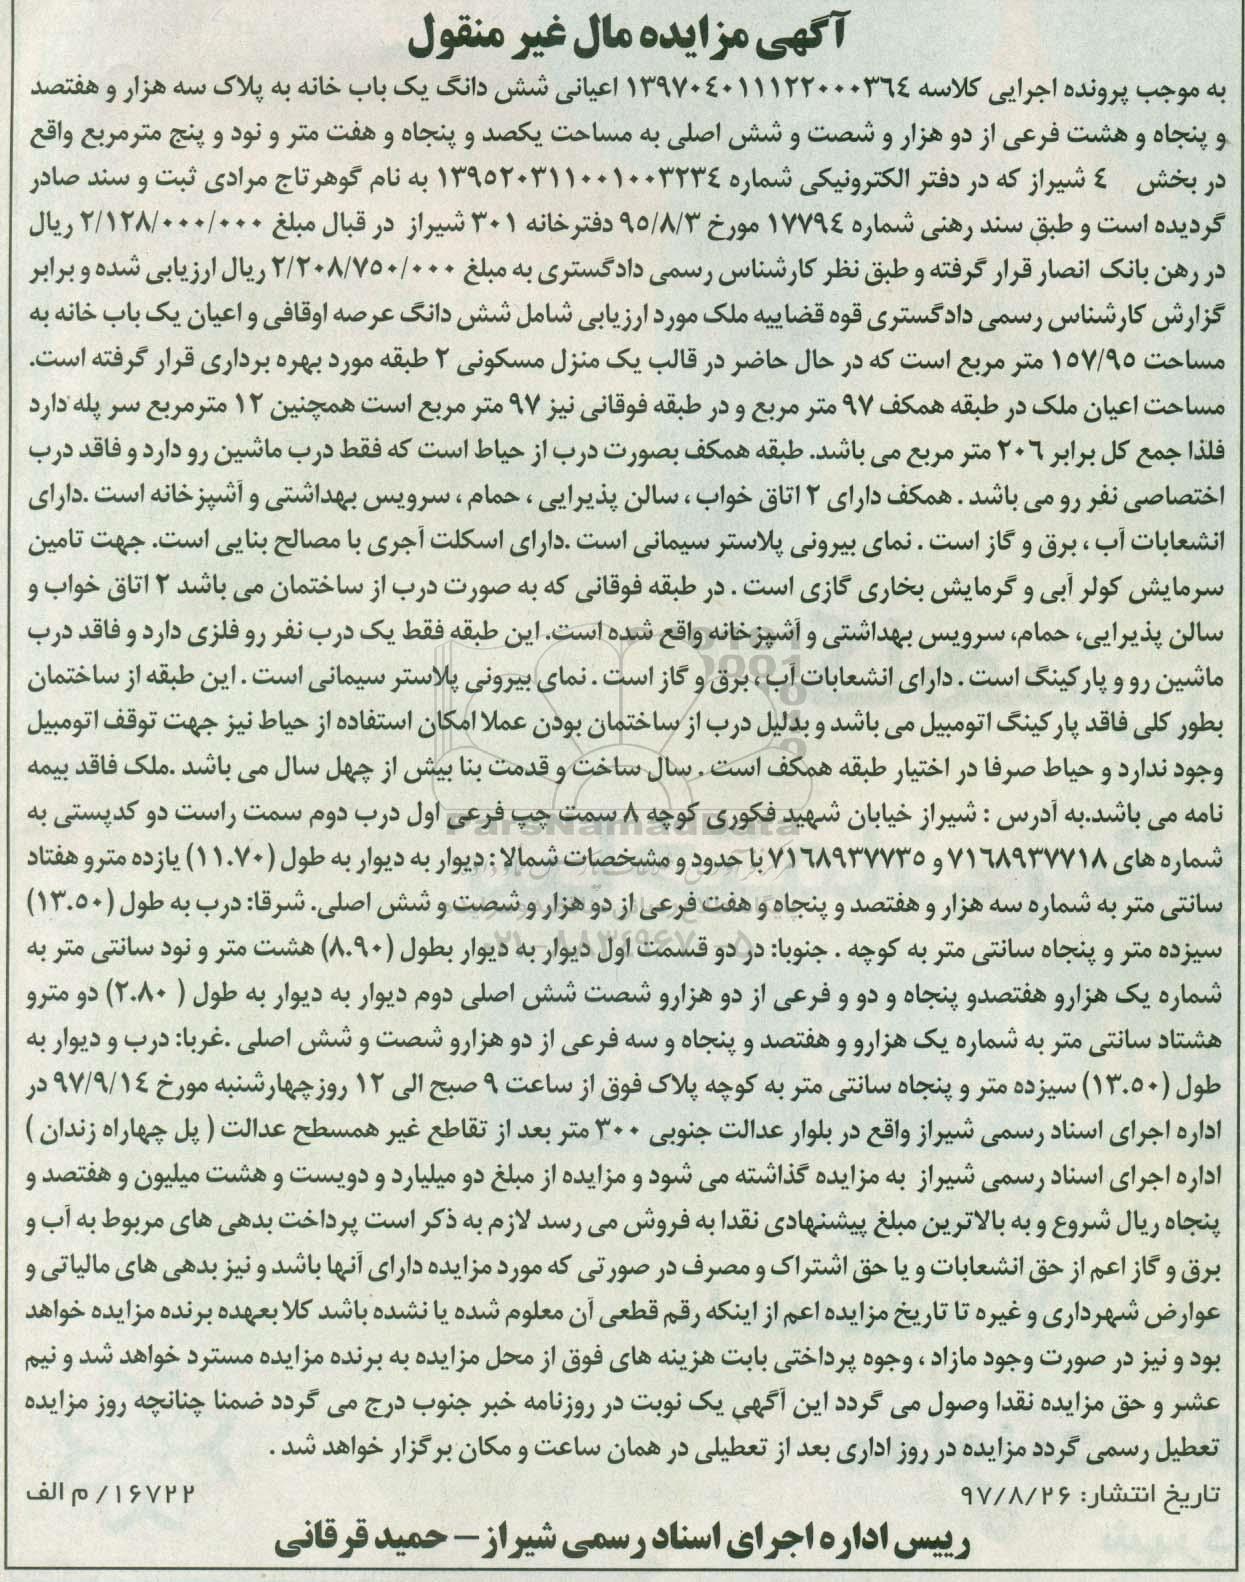 آگهی مزایده مال غیر منقول
به موجب پرونده اجرایی کلاسه ۱۳۹۷۰۴۰۱۱۱۲۲۰۰۰۳۶۴ اعیانی شش دانگ یک باب خانه به پلاک سه هزار و هفتصد
و پنجاه و هشت فرعی از دو هزار و شصت و شش اصلی به مساحت یکصد و پنجاه و هفت متر و نود و پنج مترمربع واقع
در بخش ۴ شیراز که در دفتر الکترونیکی شماره ۱۳۹۵۲۰۳۱۱۰۰۱۰۰۳۲۳۴ به نام گوهرتاج مرادی ثبت و سند صادر
گردیده است و طبق سند رهنی شماره ۱۷۷۹۴ مورخ ۹۵/۸/۳ دفترخانه ۳۰۱ شیراز در قبال مبلغ ۲/۱۲۸/۰۰۰/۰۰۰ ریال
در رهن بانک انصار قرار گرفته و طبق نظر کارشناس رسمی دادگستری به مبلغ ۲/۲۰۸/۷۵۰/۰۰۰ ریال ارزیابی شده و برابر
گزارش کارشناس رسمی دادگستری قوه قضاییه ملک مورد ارزیابی شامل شش دانگ عرصه اوقافی و اعیان یک باب خانه به
مساحت ۱۵۷/۹۵ متر مربع است که در حال حاضر در قالب یک منزل مسکونی ۲ طبقه مورد بهره برداری قرار گرفته است.
مساحت اعیان ملک در طبقه همکف ۹۷ متر مربع و در طبقه فوقانی نیز ۹۷ متر مربع است همچنین ۱۲ مترمربع سر پله دارد
فلذا جمع کل برابر ۲۰۶ متر مربع می باشد. طبقه همکف بصورت درب از حیاط است که فقط درب ماشین رو دارد و فاقد درب
اختصاصی نفر رو می باشد . همکف دارای ۲ اتاق خواب ، سالن پذیرایی ، حمام ، سرویس بهداشتی و آشپزخانه است .دارای
انشعابات آب ، برق و گاز است . نمای بیرونی پلاستر سیمانی است .دارای اسکلت آجری با مصالح بنایی است. جهت تامین
سرمایش کولر آبی و گرمایش بخاری گازی است . در طبقه فوقانی که به صورت درب از ساختمان می باشد ۲ اتاق خواب و
سالن پذیرایی، حمام، سرویس بهداشتی و آشپزخانه واقع شده است. این طبقه فقط یک درب نفر رو فلزی دارد و فاقد درب
ماشین رو و پارکینگ است . دارای انشعابات آب ، برق و گاز است . نمای بیرونی پلاستر سیمانی است . این طبقه از ساختمان
بطور کلی فاقد پارکینگ اتومبیل می باشد و بدلیل درب از ساختمان بودن عملا امکان استفاده از حیاط نیز جهت توقف اتومبیل
وجود ندارد و حیاط صرفا در اختیار طبقه همکف است . سال ساخت و قدمت بنا بیش از چهل سال می باشد .ملک فاقد بیمه
نامه می باشد.به آدرس : شیراز خیابان شهید فکوری کوچه ۸ سمت چپ فرعی اول درب دوم سمت راست دو کدپستی به
شماره های ۷۱۶۸۹۳۷۷۱۸ و ۷۱۶۸۹۳۷۷۳۵ با حدود و مشخصات شمالا : دیوار به دیوار به طول (۱۱.۷۰) یازده مترو هفتاد
سانتی متر به شماره سه هزار و هفتصد و پنجاه و هفت فرعی از دو هزار و شصت و شش اصلی. شرقا: درب به طول (۱۳.۵۰)
سیزده متر و پنجاه سانتی متر به کوچه . جنوبا: در دو قسمت اول دیوار به دیوار بطول (۸.۹۰) هشت متر و نود سانتی متر به
شماره یک هزارو هفتصدو پنجاه و دو و فرعی از دو هزارو شصت شش اصلی دوم دیوار به دیوار به طول ( ۲.۸۰) دو مترو
هشتاد سانتی متر به شماره یک هزارو و هفتصد و پنجاه و سه فرعی از دو هزارو شصت و شش اصلی .غربا: درب و دیوار به
طول (۱۳.۵۰) سیزده متر و پنجاه سانتی متر به کوچه پلاک فوق از ساعت ۹ صبح الی ۱۲ روزچهارشنبه مورخ ۹۷/۹/۱۴ در
اداره اجرای اسناد رسمی شیراز واقع در بلوار عدالت جنوبی ۳۰۰ متر بعد از تقاطع غیر همسطح عدالت ( پل چهاراه زندان )
اداره اجرای اسناد رسمی شیراز به مزایده گذاشته می شود و مزایده از مبلغ دو میلیارد و دویست و هشت میلیون و هفتصد و
پنجاه ریال شروع و به بالاترین مبلغ پیشنهادی نقدا به فروش می رسد لازم به ذکر است پرداخت بدهی های مربوط به آب و
برق و گاز اعم از حق انشعابات و یا حق اشتراک و مصرف در صورتی که مورد مزایده دارای آنها باشد و نیز بدهی های مالیاتی و
عوارض شهرداری و غیره تا تاریخ مزایده اعم از اینکه رقم قطعی آن معلوم شده یا نشده باشد کلا بعهده برنده مزایده خواهد
بود و نیز در صورت وجود مازاد ، وجوه پرداختی بابت هزینه های فوق از محل مزایده به برنده مزایده مسترد خواهد شد و نیم
عشر و حق مزایده نقدا وصول می گردد این آگهی یک نوبت در روزنامه خبر جنوب درج می گردد ضمنا چنانچه روز مزایده
تعطیل رسمی گردد مزایده در روز اداری بعد از تعطیلی در همان ساعت و مکان برگزار خواهد شد .
تاریخ انتشار: ۹۷/۸/۲۶ ۱۶۷۲۲/ م الف
رییس اداره اجرای اسناد رسمی شیراز – حمید قرقانی
ParsNamadData
۰۲۱-۸۸۳۴۹۶۷۰-۵